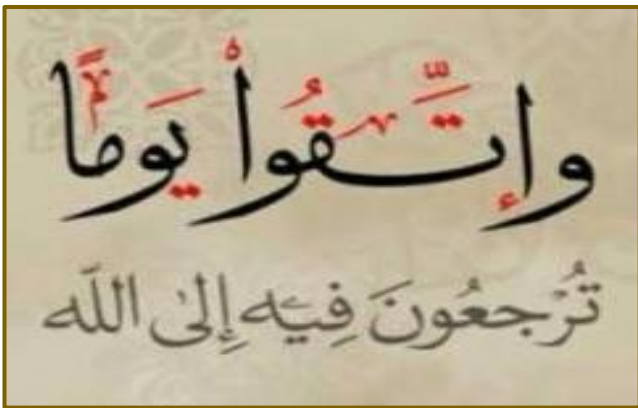 وإتَّقُواْ يَوماً
تُرْجعُونَ فِيْه إِلىٰ اللَه